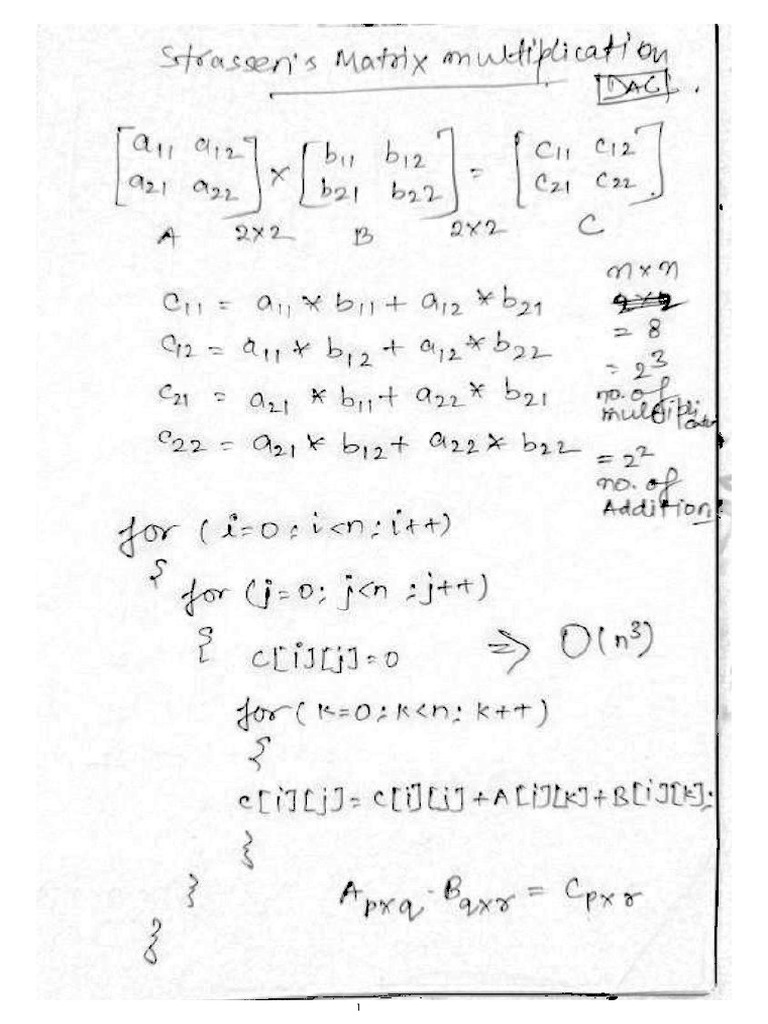 Strassen's Matrix multiplication
DAC.
[a11 a12 a21 a22] × [b11 b12 b21 b22] = [c11 c12 c21 c22]
A 2×2 B 2×2 C
n×n
c11 = a11 * b11 + a12 * b21
= 8
c12 = a11 * b12 + a12 * b22
= 2³
c21 = a21 * b11 + a22 * b21
no. of
multipli
c22 = a21 * b12 + a22 * b22
= 2²
no. of
Addition
for (i=0; i<n; i++)
{
for (j=0; j<n; j++)
{
c[i][j]=0 => O(n³)
for (k=0; k<n; k++)
{
c[i][j]= c[i][j]+A[i][k]+B[i][k];
}
}
A p×q . B q×r = C p×r
}
1